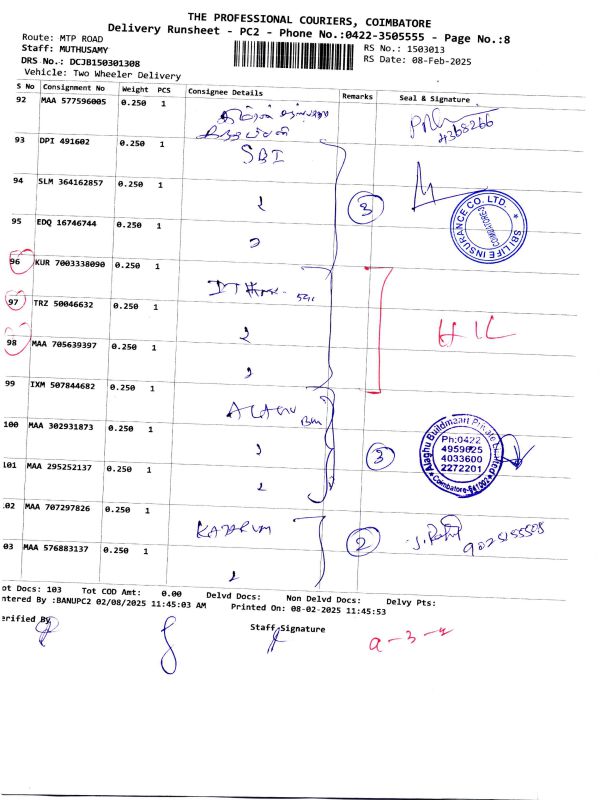 THE PROFESSIONAL COURIERS, COIMBATORE
Delivery Runsheet - PC2 - Phone No.:0422-3505555 - Page No.:8
Route: MTP ROAD
RS No.: 1503013
Staff: MUTHUSAMY
RS Date: 08-Feb-2025
DRS No.: DCJB150301308
Vehicle: Two Wheeler Delivery
S No Consignment No Weight PCS Consignee Details Remarks Seal & Signature
92 MAA 577596005 0.250 1
4368266
93 DPI 491602 0.250 1 SBI
94 SLM 364162857 0.250 1 2 3
SBI LIFE INSURANCE CO. LTD. * COIMBATORE
95 EDQ 16746744 0.250 1 3
96 KUR 7003338090 0.250 1
97 TRZ 50046632 0.250 1 2
98 MAA 705639397 0.250 1 3
99 IXM 507844682 0.250 1 ALAGU
100 MAA 302931873 0.250 1 3 3
Alaghu Buildmaart Private Limited
Ph:0422
4959025
4033600
2272201
* Coimbatore-641002 *
101 MAA 295252137 0.250 1 2
02 MAA 707297826 0.250 1 2
03 MAA 576883137 0.250 1 2
ot Docs: 103 Tot COD Amt: 0.00 Delvd Docs: Non Delvd Docs: Delvy Pts:
ntered By :BANUPC2 02/08/2025 11:45:03 AM Printed On: 08-02-2025 11:45:53
erified By
Staff Signature